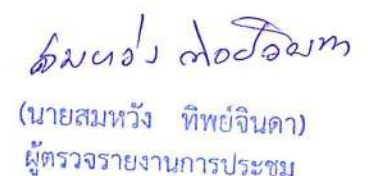 สมหวัง
(นายสมหวัง ทิพย์จินดา)
ผู้ตรวจรายงานการประชุม